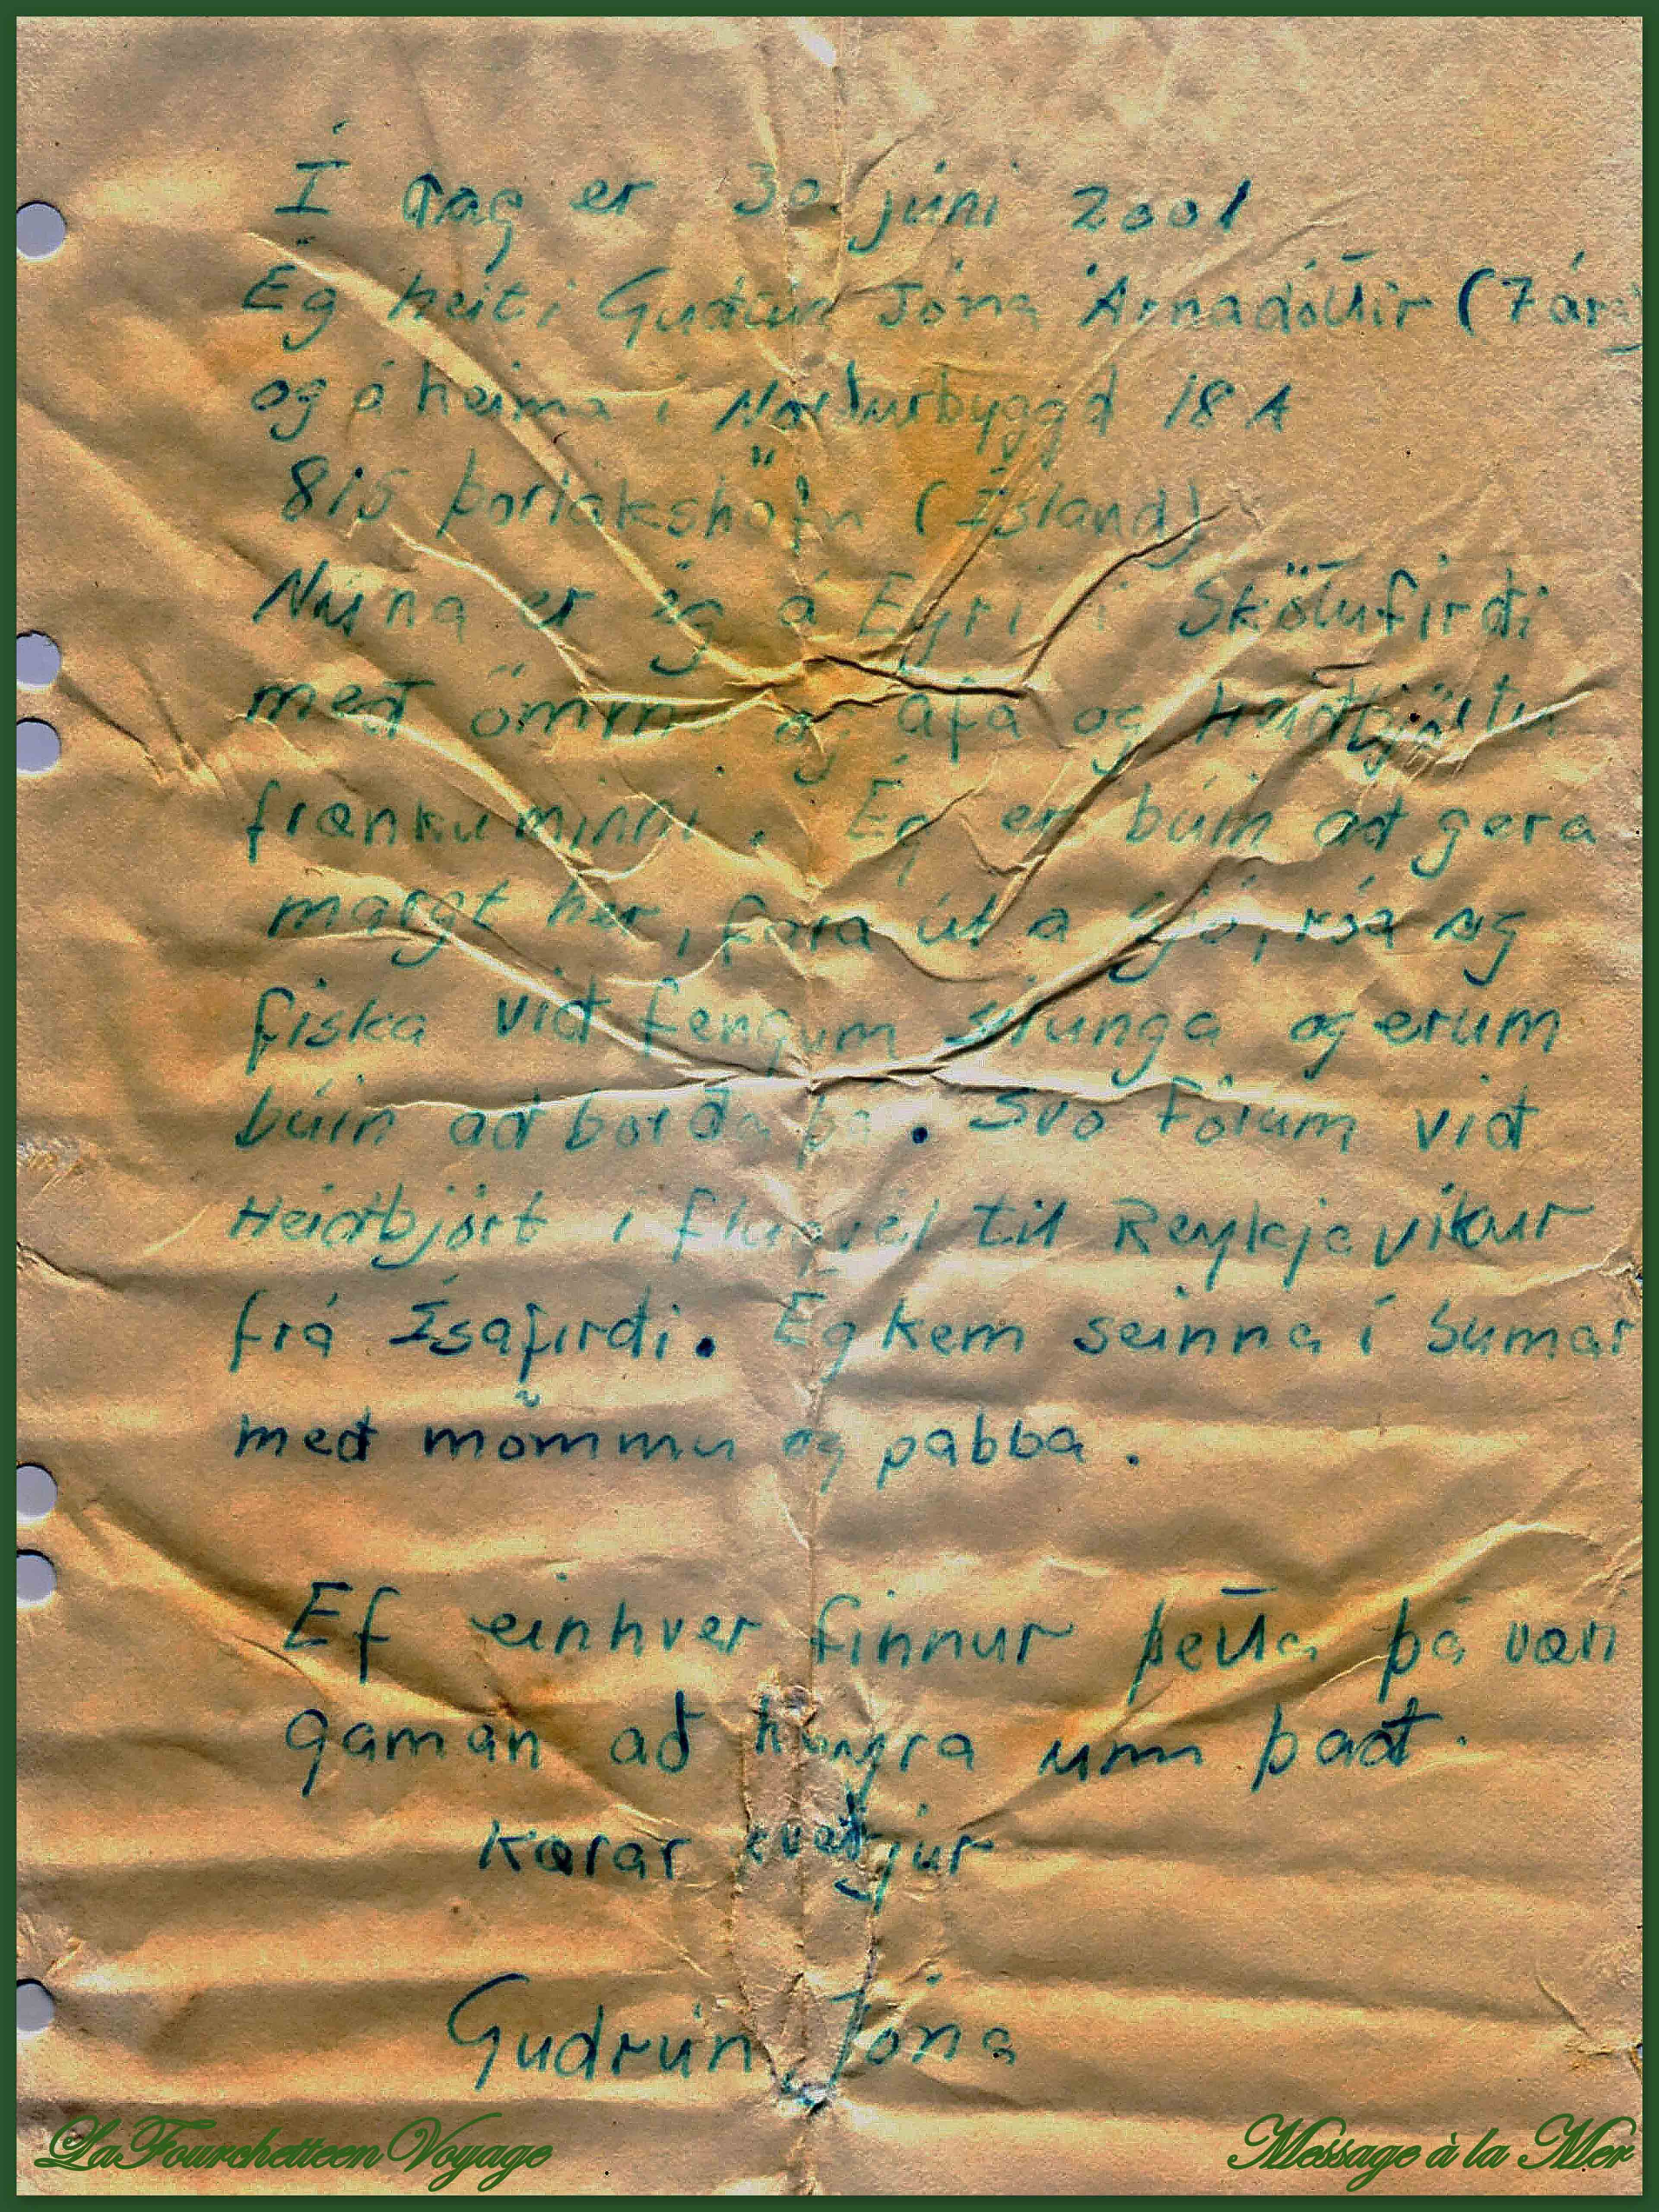 Í dag er 30. júni 2001
Ég heiti Guðrún Jóna Árnadóttir (7 ára)
og á heima í Norðurbyggð 18A
815 Þorlákshöfn (Ísland)
Núna er ég á Eyri í Skötufirði
með ömmu og afa og Heiðbjörtu
frænku minni. Ég er búin að gera
margt hér, fara út á sjó, róa og
fiska við fengum silunga og erum
búin að borða þá. Svo förum við
Heiðbjört í flugvél til Reykjavíkur
frá Ísafirði. Ég kem seinna í sumar
með mömmu og pabba.
Ef einhver finnur þetta þá væri
gaman að heyra um það.
Kærar kveðjur
Guðrún Jóna
LaFourchetteenVoyage
Message à la Mer